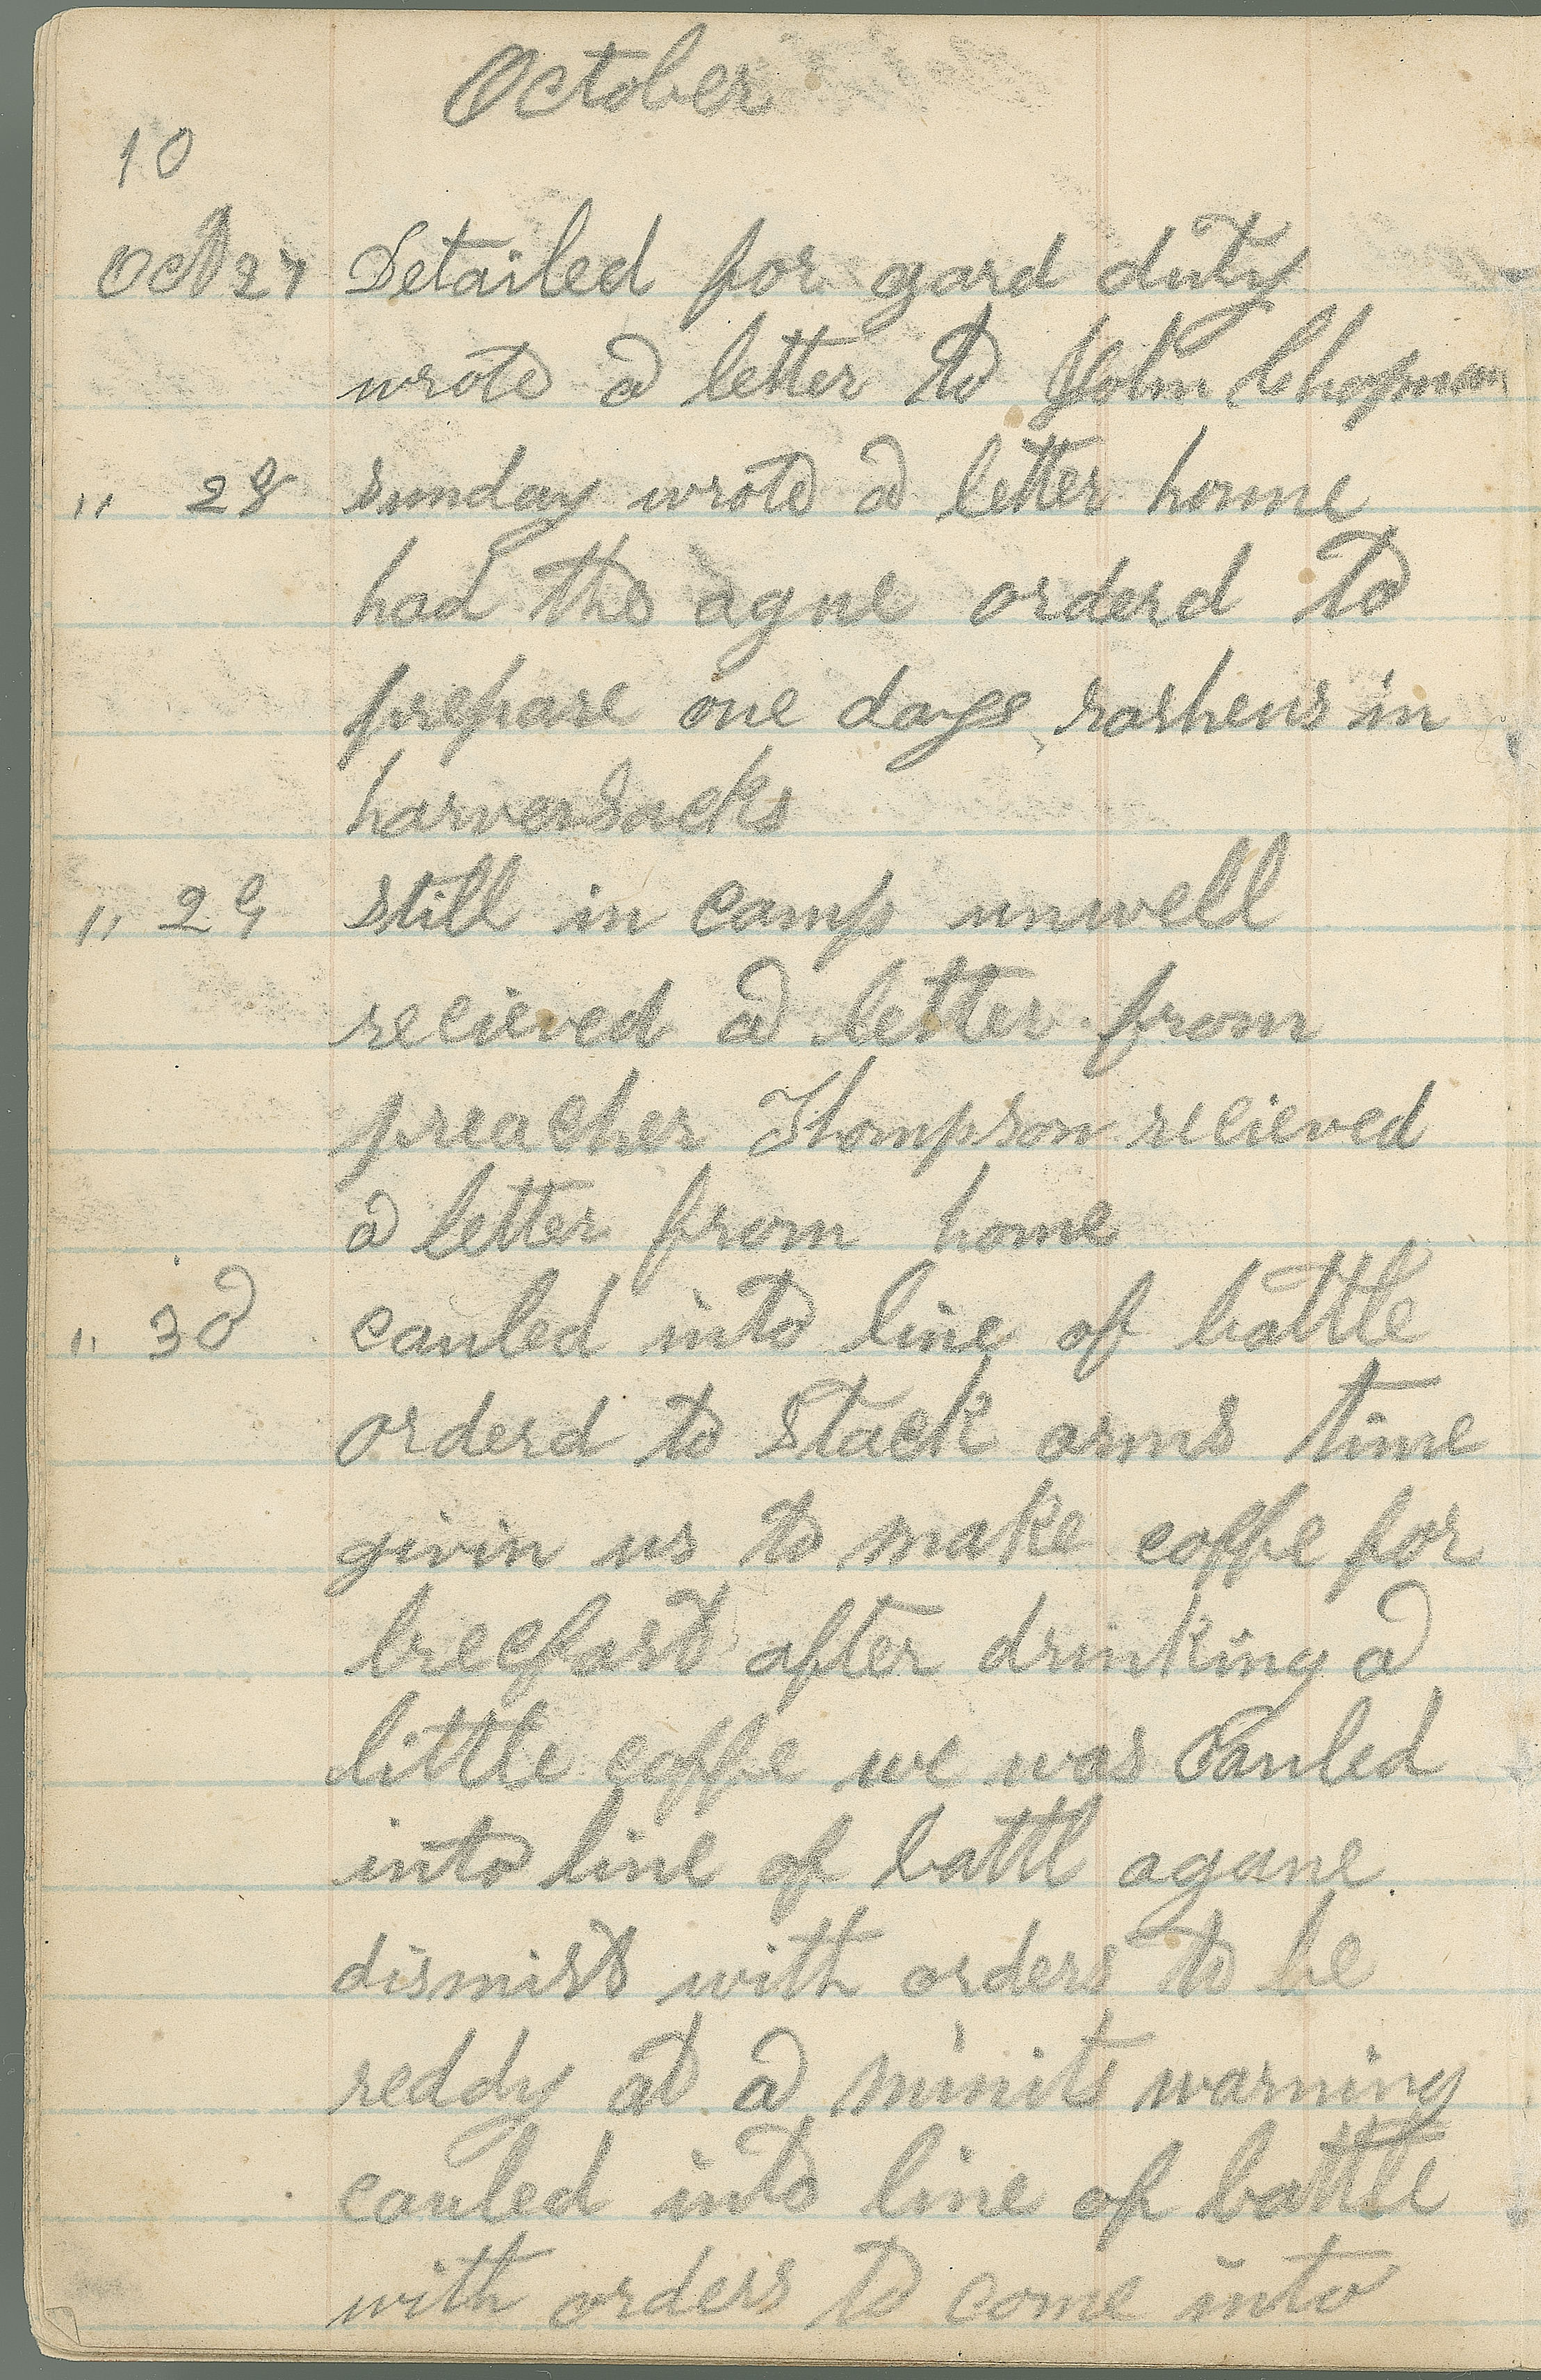 October
10
Oct 27 Detailed for gard duty
wrote a letter to John Chapman
" 28 sunday wrote a letter home
had the ague orderd to
prepare one days rashens in
harversacks
" 29 still in camp unwell
recieved a letter from
preacher Thompson recieved
a letter from home
" 30 cauled into line of battle
orderd to stack arms time
givin us to make coffe for
brecfast after drinking a
little coffe we was cauled
into line of battl agane
dismist with orders to be
reddy at a minits warning
cauled into line of battle
with orders to come into